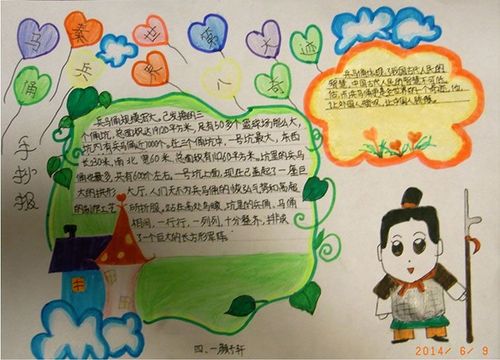 马 秦 世 第 大 迹
俑 兵 界 八 奇
手抄报
兵马俑规模宏大。已发掘的三
个俑坑，总面积达19120平方米，足有50多个篮球场那么大，
坑内有兵马俑近8000个。在三个俑坑中，一号坑最大，东西
长230米，南北宽60米，总面积有14260平方米。坑里的兵马
俑也最多，共有6000左右。一号坑上面，现在已盖起了一座巨
大的拱形 大厅，人们无不为兵马俑的恢弘气势和高超
的制作工艺 所折服。站在高处鸟瞰，坑里的兵俑，马俑
相间，一行行，一列列，十分整齐，排成
了一个巨大的长方形军阵。
兵马俑体现了我国古代人民的
智慧，中国古代人民的智慧不可低
估，秦兵马俑更是世界的一个奇迹，他
让外国人惊叹，让中国人骄傲。
四、一
2014/ 6/ 9